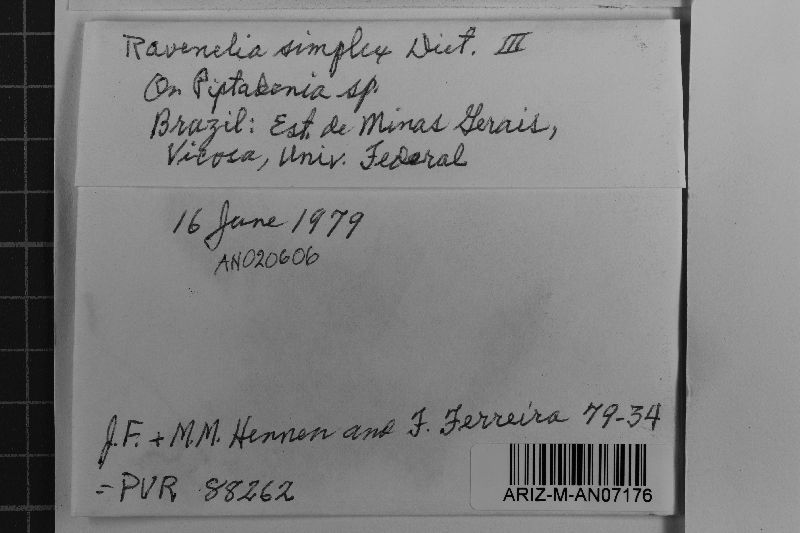 Ravenelia simplex Diet. III
On Piptadenia sp.
Brazil: Est. de Minas Gerais,
Vicosa, Univ. Federal
16 June 1979
AN020606
J.F. + M.M. Hennen and F. Ferreira 79-34
= PUR 88262
ARIZ-M-AN07176